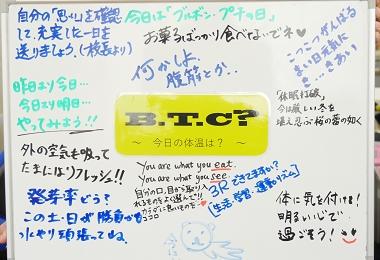 自分の「思い」を確認
して、充実した一日を
送りましょう。(校長より)
今日は「ブルボン・プチの日」
お菓子ばっかり食べないでネ♥
何かしよ、
腹筋とか..
こつこつがんばる
昨日より今日…
今日より明日…
やってみよう!!
「休眠打破」
今は厳しい冬を
堪え忍ぶ桜の蕾の如く
B.T.C?
～ 今日の体温は? ～
外の空気も吸って
たまにはリフレッシュ!!
You are what you eat.
You are what you see.
自分の口、目から取り入
れるものをよく選んで!!
カラダに良いものを
ココロ
3Rできてますか?
[生活・学習・運動リズム]
発芽率どう?
この土・日が勝負かも
水やり頑張ってね。
体に気を付ける!
明るい心で
過ごそう!